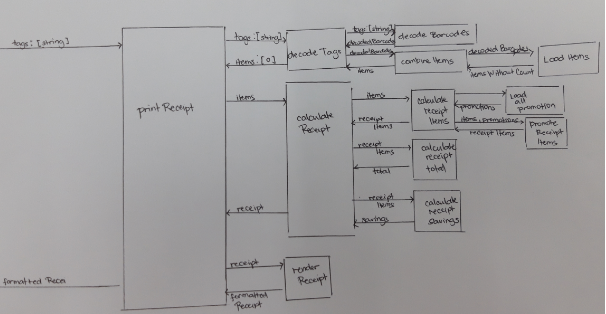 tags: [string]
printReceipt
tags: [string]
items: [o]
decode Tags
tags [string]
decodedBarcodes
decode Barcodes
decodedBarcodes
items
combine Items
decoded Barcodes
items Without Count
Load Items
items
calculate
Receipt
items
receipt
items
calculate
receipt
items
promotions
Load
all
promotion
items, promotions
receipt items
Promote
Receipt
Items
receipt
items
total
calculate
receipt
total
receipt
items
savings
calculate
receipt
savings
receipt
receipt
formatted
Receipt
render
Receipt
formatted Recei